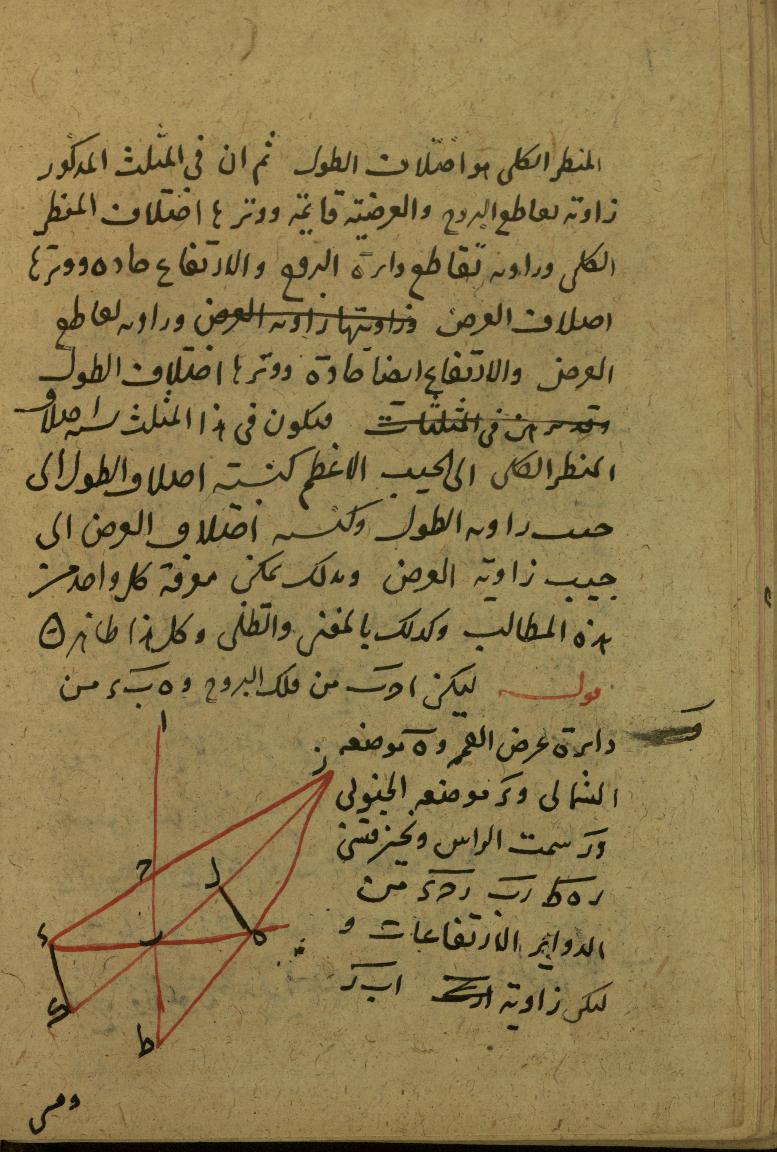 المنظر الكلى هو اختلاف الطول ثم ان فى المثلث المذكور
زاوية تقاطع البروج والعرضية قايمة ووترها اختلاف المنظر
الكلى وزاوية تقاطع دايرة البروج والارتفاع حادة ووترها
اختلاف العرض وزاويتها زاوية العرض وزاوية تقاطع
العرض والارتفاع ايضا حادة ووترها اختلاف الطول
فى المثلثات فيكون فى هذا المثلث نسبة اختلاف
المنظر الكلى الى الجيب الاعظم كنسبة اختلاف الطول الى
جيب زاوية الطول وكنسبة اختلاف العرض الى
جيب زاوية العرض وبذلك يمكن معرفة كل واحد من
هذه المطالب وكذلك بالمغنى والظلى وكل هذا ظاهر ه
قوله ليكن احب من فلك البروج و ه ب ء من
دايرة عرض القمر و ه موضعه
الشمالى و ء موضعه الجنوبى
و ز سمت الراس ولنجز قسى
ز ه ط ز ب ز ح ء من
الدواير الارتفاعات و
ليكن زاوية ا ب ز
ا
ز
ح
ل
ء
ب
ه
ط
ومى